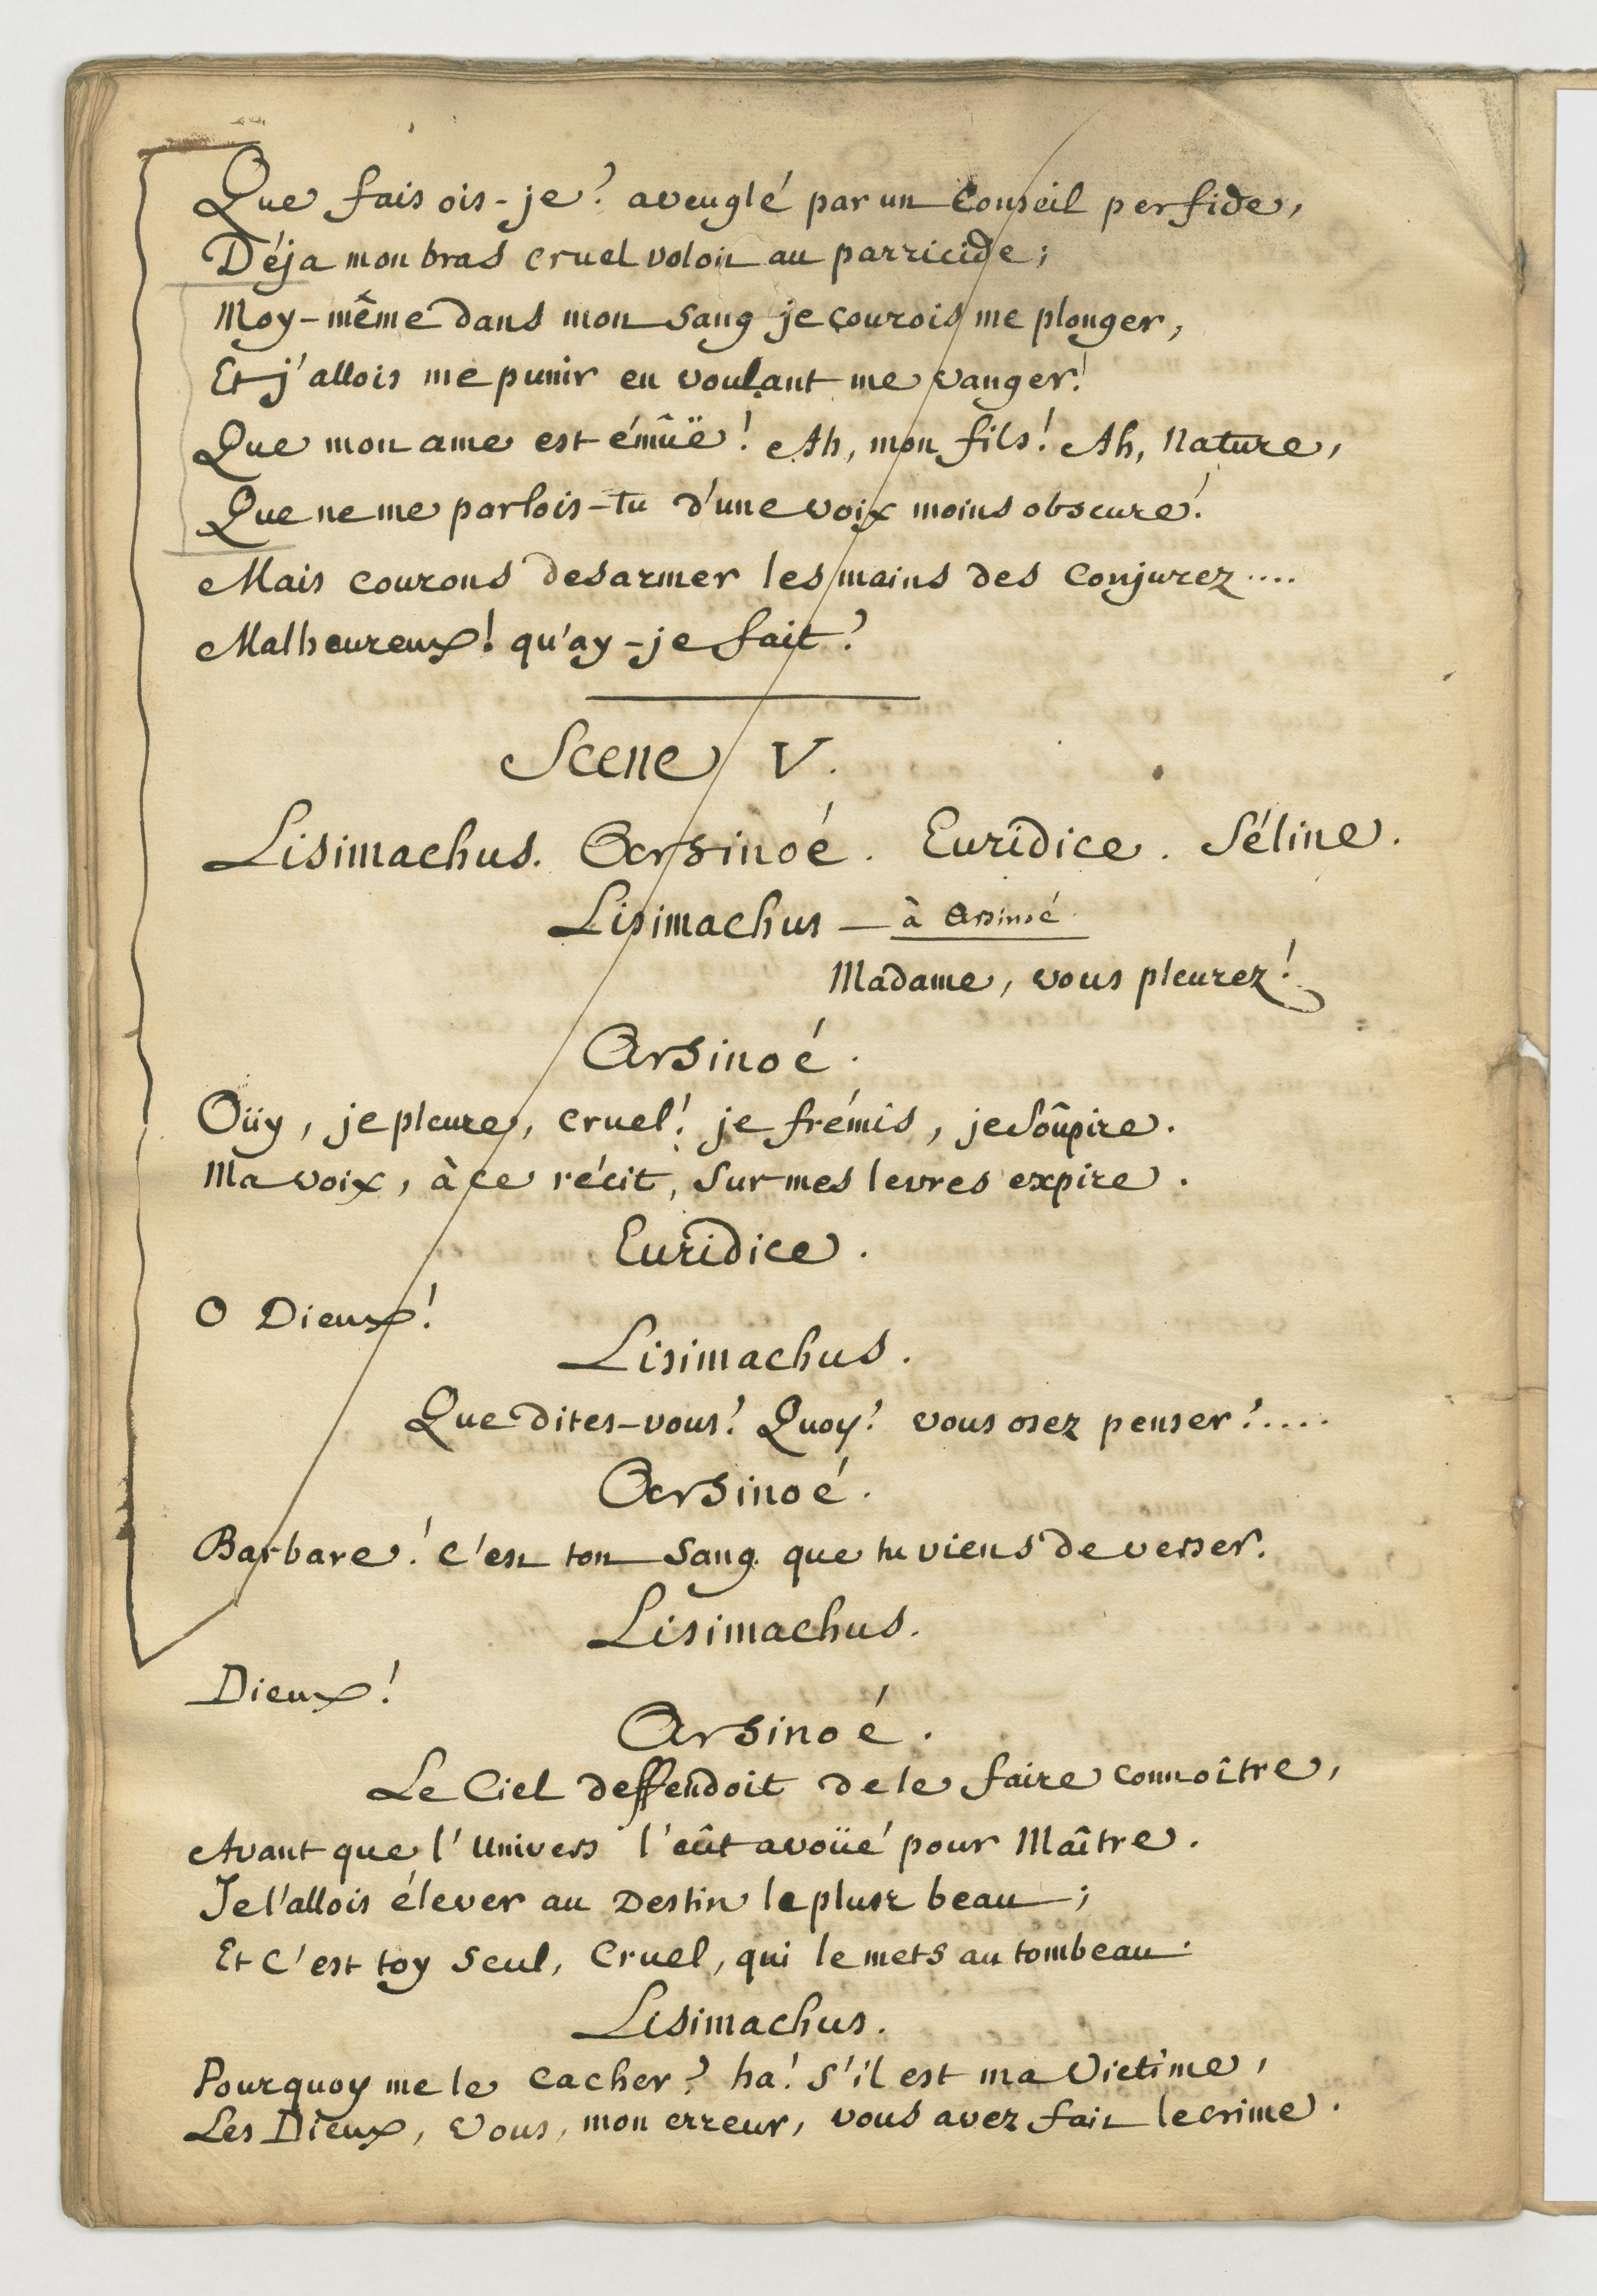 Que faisois-je? aveuglé par un Conseil perfide,
Déja mon bras cruel voloit au parricide;
Moy-même dans mon sang je courois me plonger,
Et j'allois me punir en voulant me vanger!
Que mon ame est émûë! Ah, mon fils! Ah, Nature,
Que ne me parlois-tu d'une voix moins obscure!
Mais courons desarmer les mains des Conjurez....
Malheureux! qu'ay-je fait?
Scene V.
Lisimachus. Arsinoé. Euridice. Séline.
Lisimachus — à Arsinoé
Madame, vous pleurez!
Arsinoé.
Oüy, je pleure, cruel! je frémis, je soûpire.
Ma voix, à ce récit, sur mes levres expire.
Euridice.
O Dieux!
Lisimachus.
Que dites-vous? Quoy? vous osez penser?....
Arsinoé.
Barbare! c'est ton sang que tu viens de verser.
Lisimachus.
Dieux!
Arsinoé.
Le Ciel deffendoit de le faire connoître,
Avant que l'Univers l'eût avoüé pour Maître.
Je l'allois élever au Destin le plus beau;
Et c'est toy seul, Cruel, qui le mets au tombeau.
Lisimachus.
Pourquoy me le cacher? ha! s'il est ma Victime,
Les Dieux, Vous, mon erreur, vous avez fait le crime.